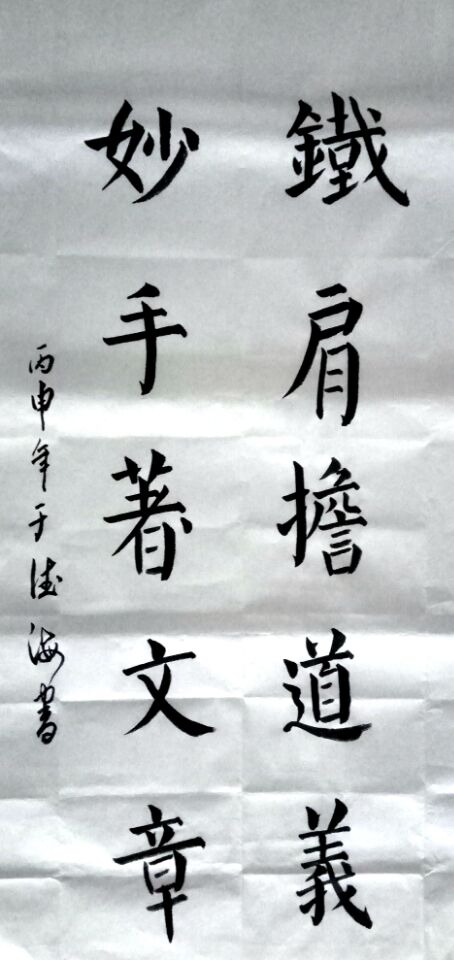 鐵肩擔道義
妙手著文章
丙申年于德海書